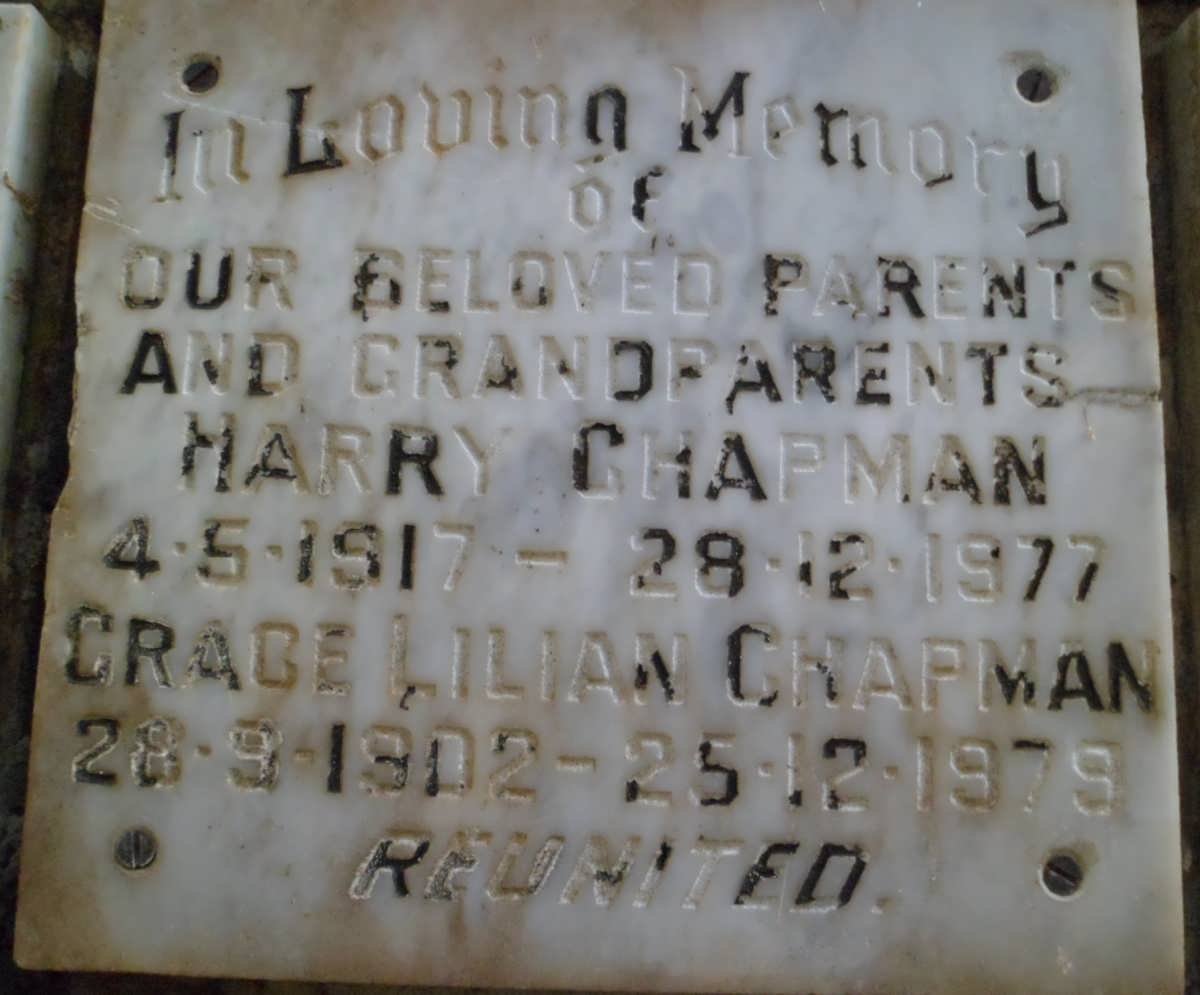 In Loving Memory
of
OUR BELOVED PARENTS
AND GRANDPARENTS
HARRY CHAPMAN
4·5·1917 – 28·12·1977
GRACE LILIAN CHAPMAN
28·9·1902 – 25·12·1979
REUNITED.